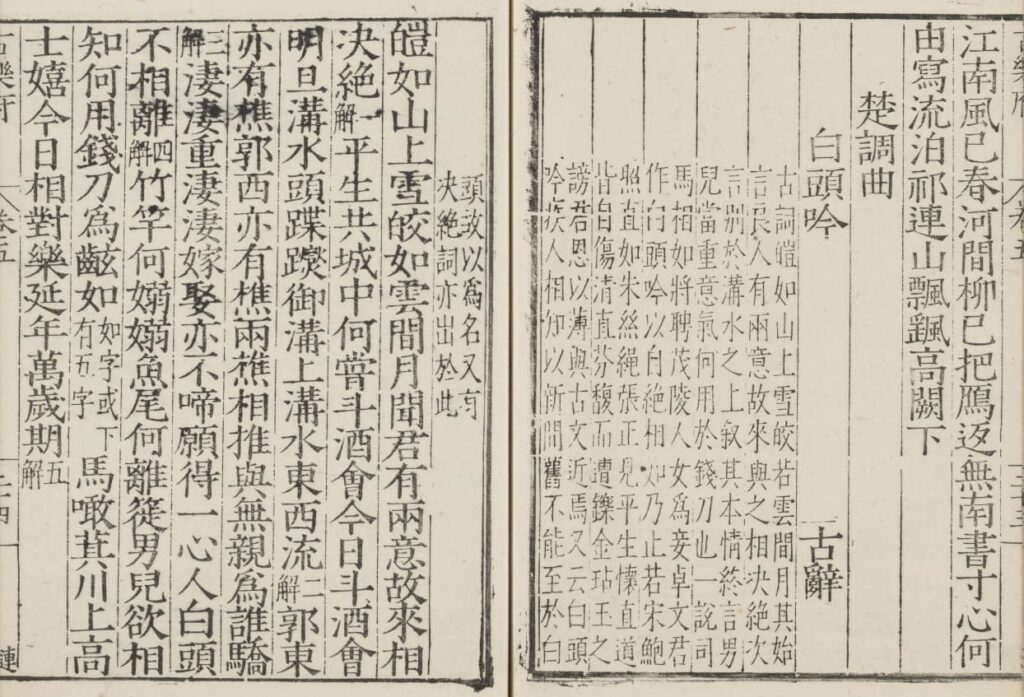 江南風已春河間柳已把鴈返無南書寸心何
由寫流泊祁連山飄颻高闕下
楚調曲
白頭吟 古辭
古詞皚如山上雪皎若雲間月其始
言良人有兩意故來與之相決絕次
言別於溝水之上叙其本情終言男
兒當重意氣何用於錢刀也一說司
馬相如將聘茂陵人女爲妾卓文君
作白頭吟以白絕相如乃止若宋鮑
照直如朱絲繩張正見平生懷直道
皆自傷清直芬馥而遭鑠金玷玉之
謗君恩以薄與古文近焉又云白頭
吟疾人相知以新間舊不能至於白
頭故以爲名又有
決絕詞亦出於此
皚如山上雪皎如雲間月聞君有兩意故來相
決絕一解平生共城中何嘗斗酒會今日斗酒會
明旦溝水頭蹀躞御溝上溝水東西流二解郭東
亦有樵郭西亦有樵兩樵相推與無親爲誰驕
三解淒淒重淒淒嫁娶亦不啼願得一心人白頭
不相離四解竹竿何嫋嫋魚尾何離簁男兒欲相
知何用錢刀爲如如字或下有五字馬噉萁川上高
士嬉今日相對樂延年萬歲期五解